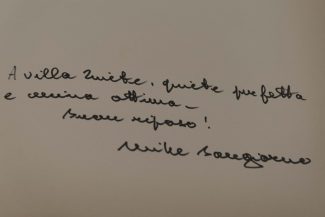 A villa Quiete, quiete perfetta
e cucina ottima –
Buon riposo!
Mike Bongiorno